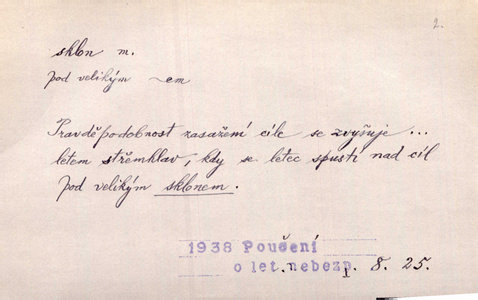 2.
sklon m.
pod velikým ~em
Pravděpodobnost zasažení cíle se zvyšuje ...
letem střemhlav, kdy se letec spustí nad cíl
pod velikým sklonem.
1938 Poučení
o let. nebezp. 8. 25.